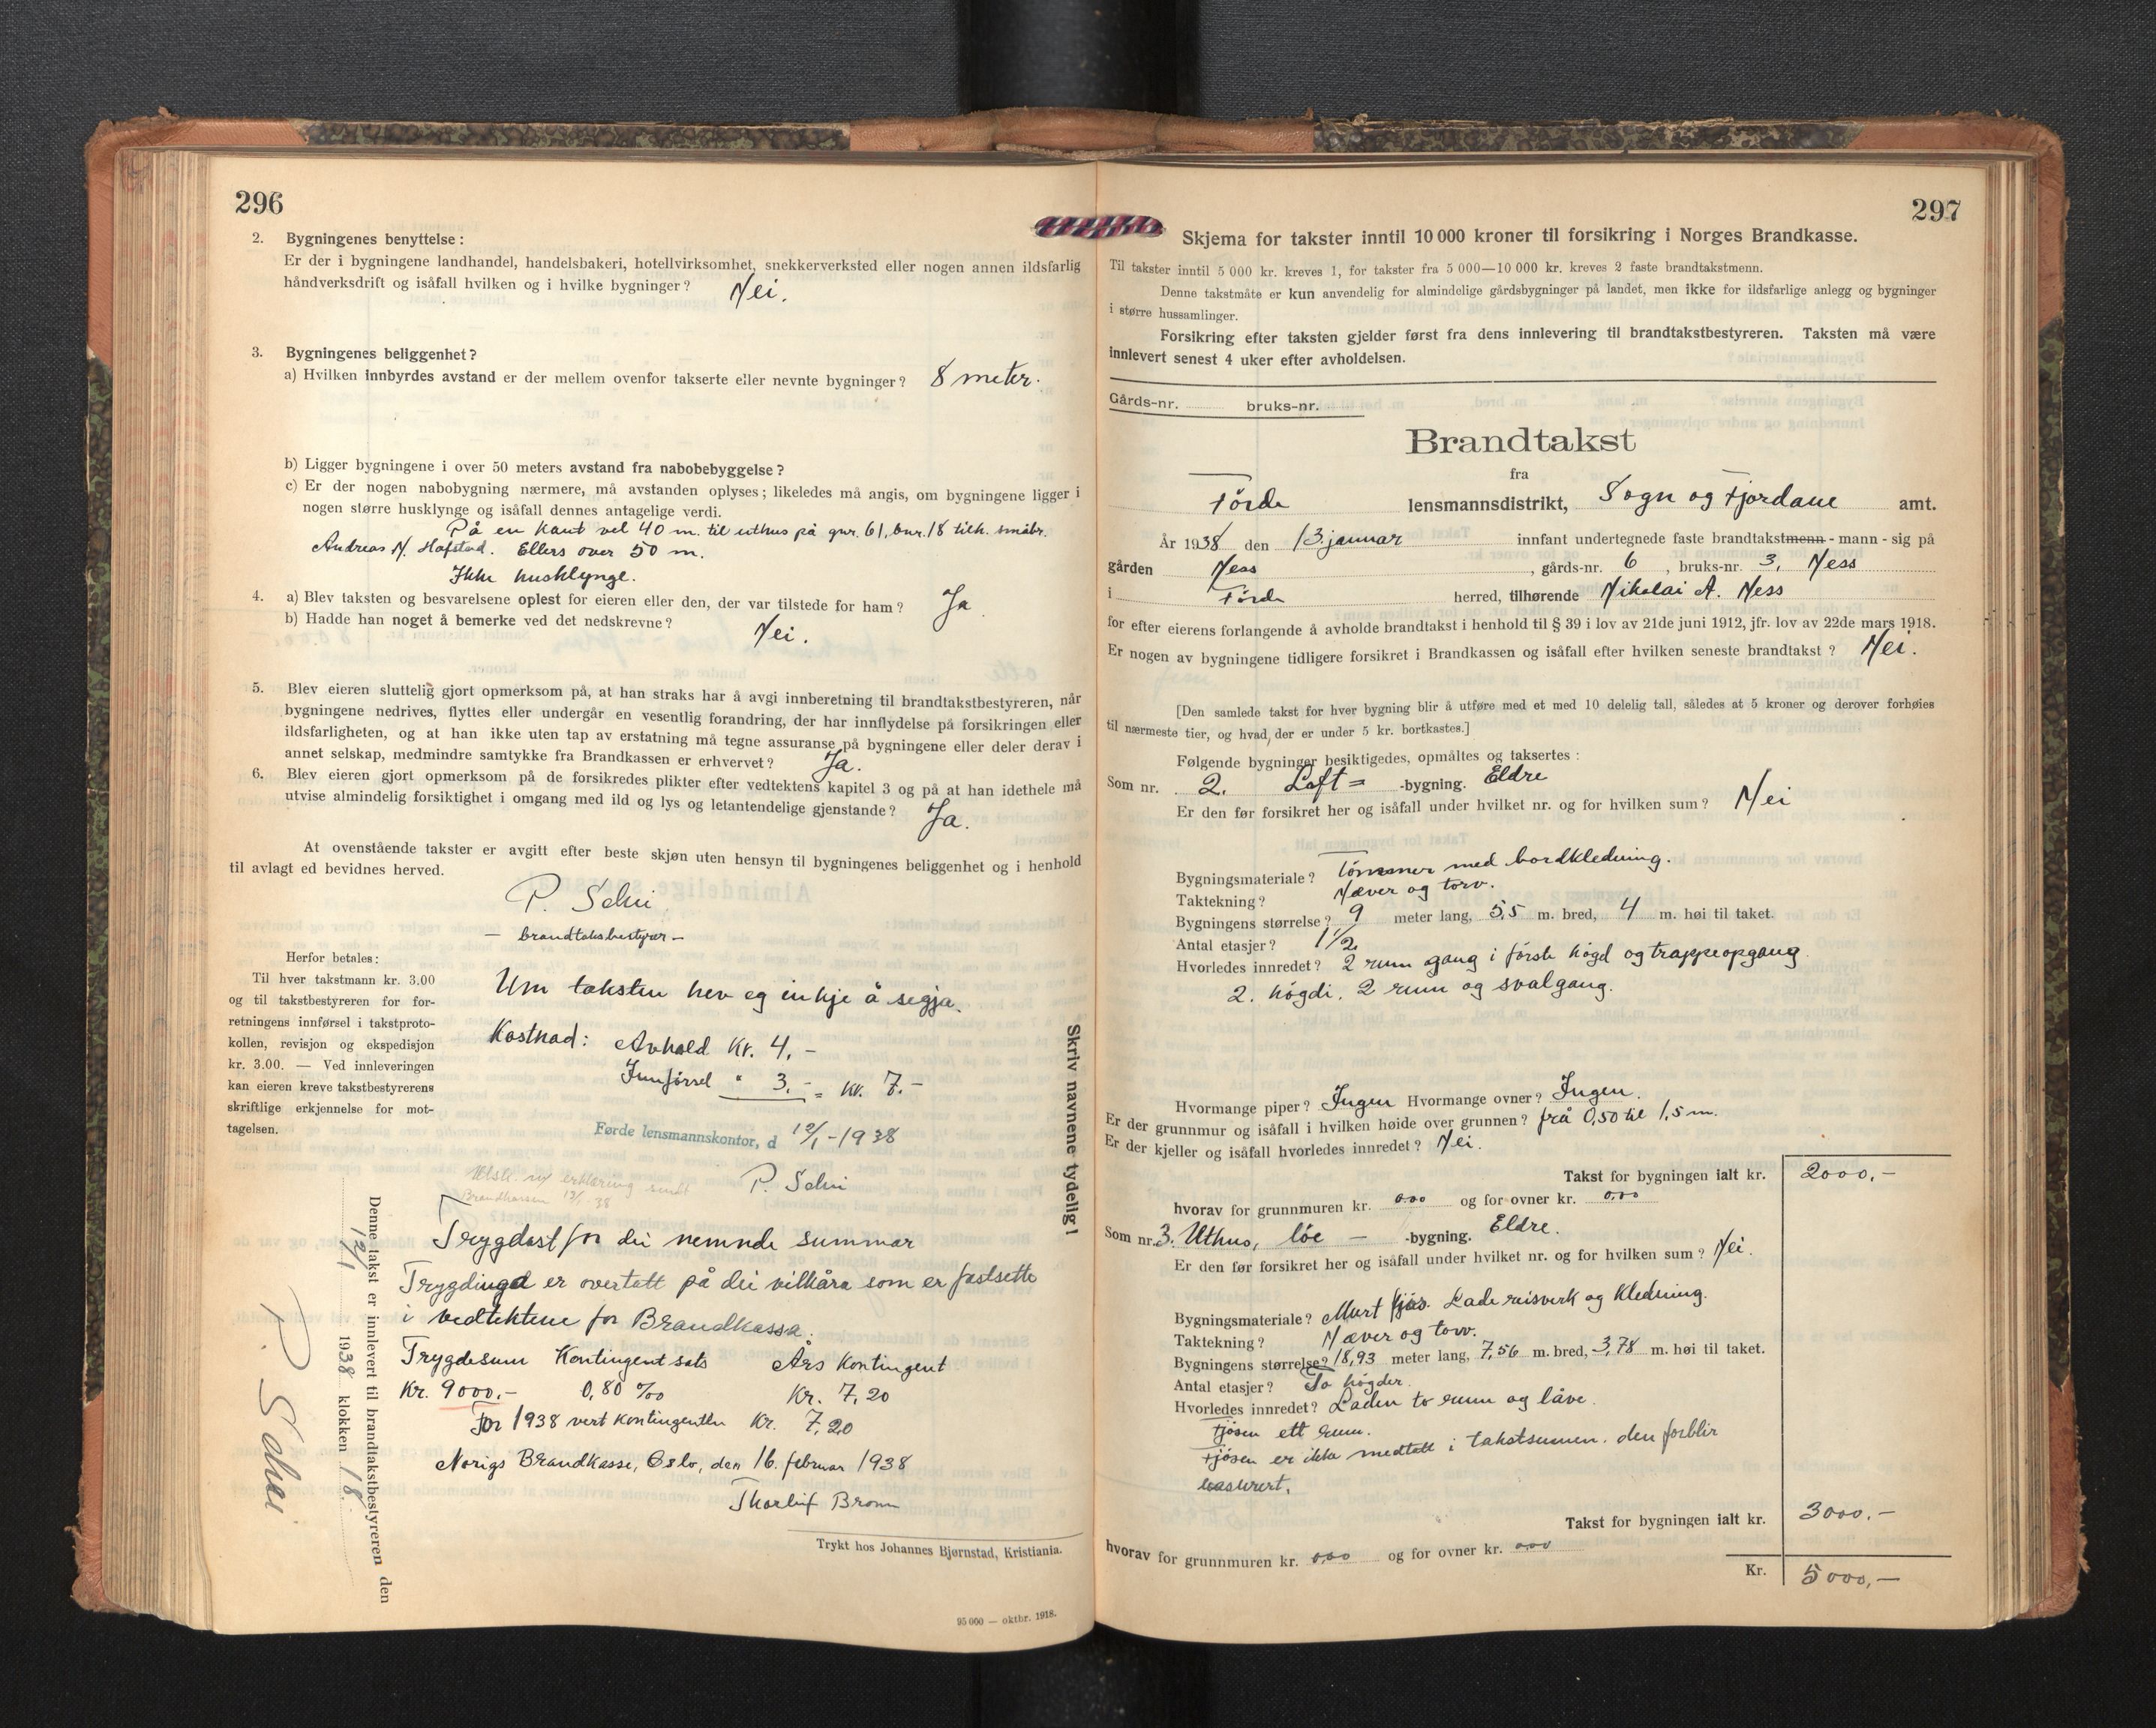 296
2. Bygningenes benyttelse:
Er der i bygningene landhandel, handelsbakeri, hotellvirksomhet, snekkerverksted eller nogen annen ildsfarlig
håndverksdrift og isåfall hvilken og i hvilke bygninger? Nei.
3. Bygningenes beliggenhet?
a) Hvilken innbyrdes avstand er der mellem ovenfor takserte eller nevnte bygninger? 8 meter.
b) Ligger bygningene i over 50 meters avstand fra nabobebyggelse?
c) Er der nogen nabobygning nærmere, må avstanden oplyses; likeledes må angis, om bygningene ligger i
nogen større husklynge og isåfall dennes antagelige verdi.
På en kant vel 40 m. til uthus på gnr. 61, bnr. 18 tilh. småbr.
Andreas N. Hafstad. Ellers over 50 m.
Ikke husklynge.
4. a) Blev taksten og besvarelsene oplest for eieren eller den, der var tilstede for ham? Ja
b) Hadde han noget å bemerke ved det nedskrevne? Nei.
5. Blev eieren sluttelig gjort opmerksom på, at han straks har å avgi innberetning til brandtakstbestyreren, når
bygningene nedrives, flyttes eller undergår en vesentlig forandring, der har innflydelse på forsikringen eller
ildsfarligheten, og at han ikke uten tap av erstatning må tegne assuranse på bygningene eller deler derav i
annet selskap, medmindre samtykke fra Brandkassen er erhvervet? Ja.
6. Blev eieren gjort opmerksom på de forsikredes plikter efter vedtektens kapitel 3 og på at han idethele må
utvise almindelig forsiktighet i omgang med ild og lys og letantendelige gjenstande? Ja.
At ovenstående takster er avgitt efter beste skjøn uten hensyn til bygningenes beliggenhet og i henhold
til avlagt ed bevidnes herved.
P. Solvi
– brandtakstbestyrer –
Herfor betales:
Til hver takstmann kr. 3.00
og til takstbestyreren for for-
retningens innførsel i takstproto-
kollen, revisjon og ekspedisjon
kr. 3.00. — Ved innleveringen
kan eieren kreve takstbestyrerens
skriftlige erkjennelse for mot-
tagelsen.
Um taksten hev eg inkje å segja.
Kostnad: Avhald Kr. 4,-
Innførsel " 3.- = kr. 7.-
Førde lensmannskontor, d 12/1-1938
P. Solvi
erklæring sendt
Brandkassen 13/1-38
Trygdast for dei nemnde summar
Trygdingd er overtatt på dei vilkåra som er fastsette
i vedtektene for Brandkassa.
Trygdesum Kontingentsats Års kontingent
Kr. 9000,- 0,80 ‰ Kr. 7,20
For 1938 vert kontingenten Kr. 7,20
Norigs Brandkasse, Oslo, den 16. februar 1938
Thorleif Bronn
Skriv navnene tydelig!
Denne takst er innlevert til brandtakstbestyreren den
12/1 1938 klokken 18.
P. Solvi
Trykt hos Johannes Bjørnstad, Kristiania.
95 000 — oktbr. 1918.
297
Skjema for takster inntil 10 000 kroner til forsikring i Norges Brandkasse.
Til takster inntil 5 000 kr. kreves 1, for takster fra 5 000—10 000 kr. kreves 2 faste brandtakstmenn.
Denne takstmåte er kun anvendelig for almindelige gårdsbygninger på landet, men ikke for ildsfarlige anlegg og bygninger
i større hussamlinger.
Forsikring efter taksten gjelder først fra dens innlevering til brandtakstbestyreren. Taksten må være
innlevert senest 4 uker efter avholdelsen.
Gårds-nr. bruks-nr.
Brandtakst
fra
Förde lensmannsdistrikt, Sogn og Fjordane amt.
År 1938 den 13. januar innfant undertegnede faste brandtakstmenn - mann - sig på
gården Ness, gårds-nr. 6, bruks-nr. 3, Ness
i Förde herred, tilhørende Nikolai A. Ness
for efter eierens forlangende å avholde brandtakst i henhold til § 39 i lov av 21de juni 1912, jfr. lov av 22de mars 1918.
Er nogen av bygningene tidligere forsikret i Brandkassen og isåfall efter hvilken seneste brandtakst? Nei.
[Den samlede takst for hver bygning blir å utføre med et med 10 delelig tall, således at 5 kroner og derover forhøies
til nærmeste tier, og hvad der er under 5 kr. bortkastes.]
Følgende bygninger besiktigedes, opmåltes og taksertes:
Som nr. 2. Loft= -bygning. Eldre
Er den før forsikret her og isåfall under hvilket nr. og for hvilken sum? Nei
Bygningsmateriale? Tömmer med bordkledning.
Taktekning? Næver og torv.
Bygningens størrelse? 9 meter lang, 5,5 m. bred, 4 m. høi til taket.
Antal etasjer? 1½
Hvorledes innredet? 2 rum gang i förste högd og trappeopgang
2. högdi, 2 rum og svalgang.
Hvormange piper? Ingen Hvormange ovner? Ingen.
Er der grunnmur og isåfall i hvilken høide over grunnen? frå 0,50 til 1,5 m.
Er der kjeller og isåfall hvorledes innredet? Nei.
Takst for bygningen ialt kr. 2000,-
hvorav for grunnmuren kr. 0,00 og for ovner kr. 0,00
Som nr. 3. Uthus, löe — -bygning. Eldre.
Er den før forsikret her og isåfall under hvilket nr. og for hvilken sum? Nei.
Bygningsmateriale? Murt fjös. Lade reisverk og kledning.
Taktekning? Næver og torv.
Bygningens størrelse? 18,93 meter lang, 7,56 m. bred, 3,78 m. høi til taket.
Antal etasjer? To högder.
Hvorledes innredet? Laden to rum og låve.
Fjösen ett rum.
Fjösen er ikke medtatt i takstsummen. den forblir
uasurert.
Takst for bygningen ialt kr. 3000.-
hvorav for grunnmuren kr. 0,00 og for ovner kr. 0,00
Kr. 5000,-